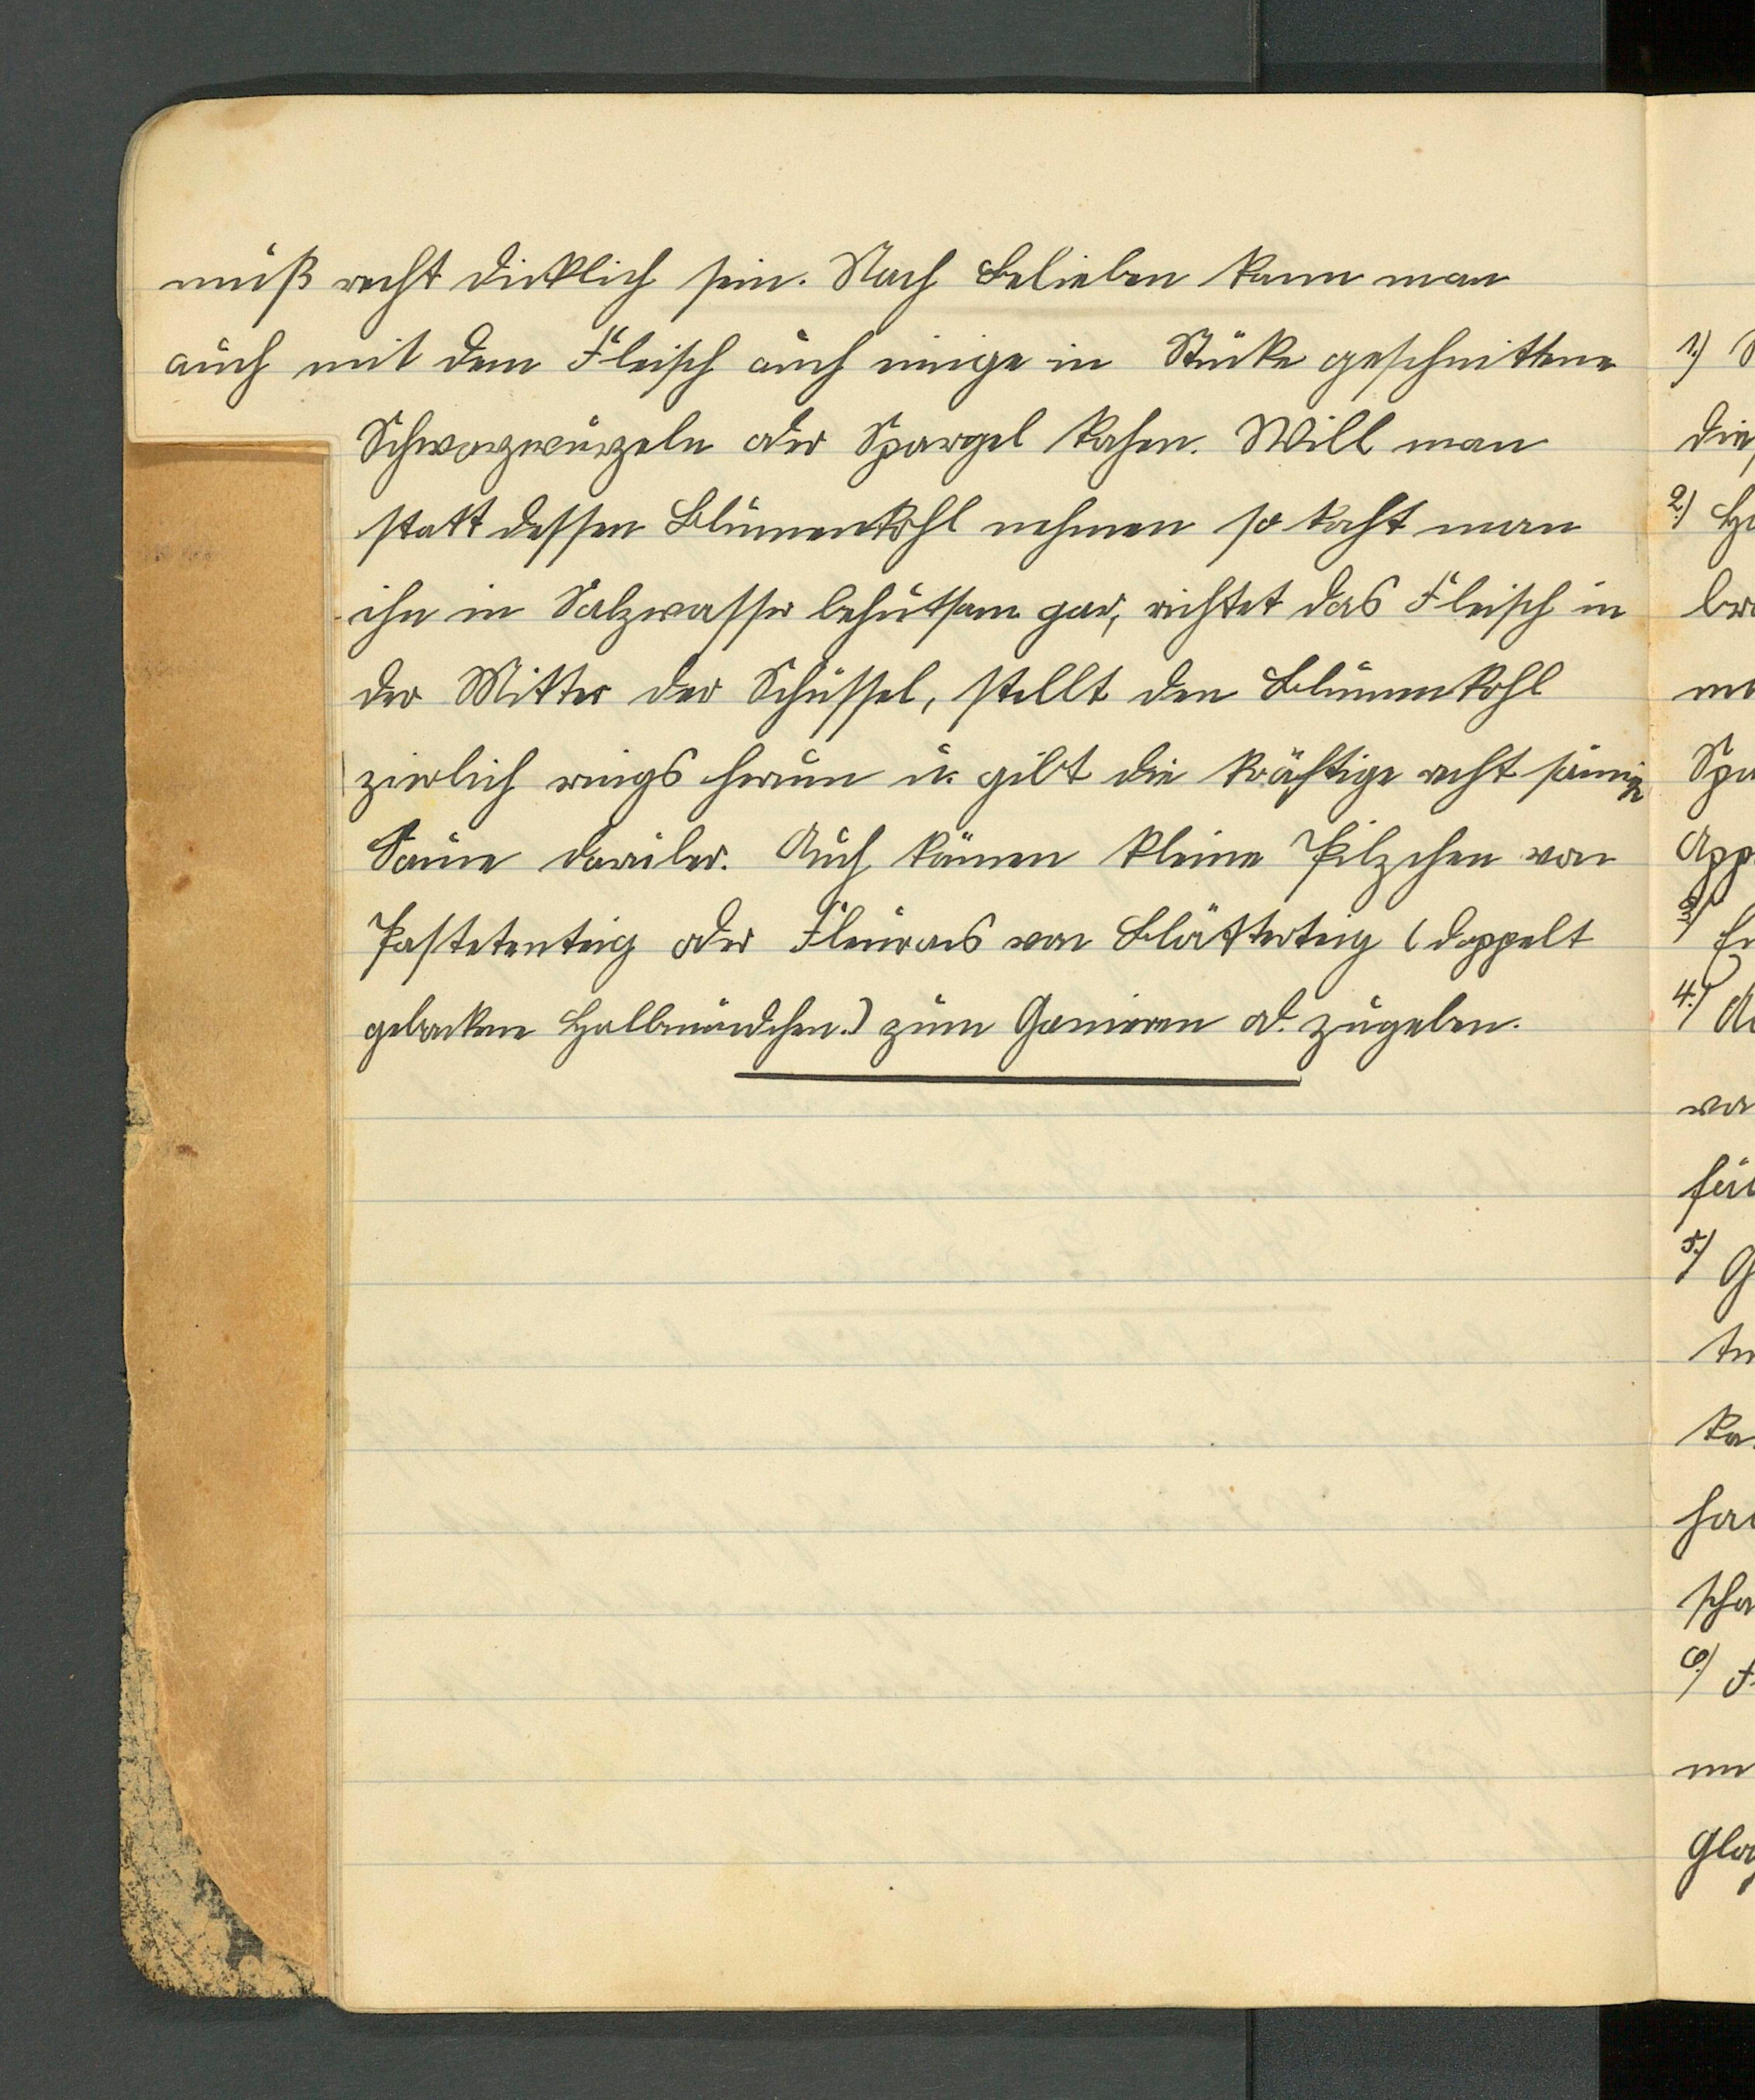 muß recht dicklich sein. Nach Belieben kann man
auch mit dem Fleisch auch einige in Stücke geschnittene
Schwarzwurzeln oder Spargel kochen. Will man
statt dessen Blumenkohl nehmen so kocht man
ihn in Salzwasser behutsam gar, richtet das Fleisch in
der Mitte der Schüssel, stellt den Blumenkohl
zierlich rings herum u. gibt die kräftige recht sämige
Sauce darüber. Auch können kleine Pilzchen von
Pastetenteig oder Fleurons von Blätterteig (doppelt
gebackene Halbmöndchen.) zum Garnieren od. zugeben.
1.)
die
2.)
Spa
App
3.)
4.)
5.)
6.)